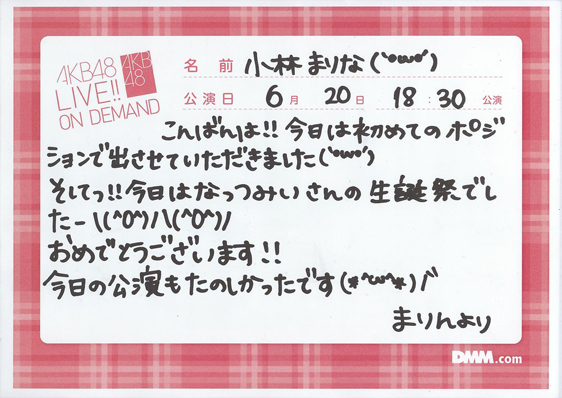 AKB48
LIVE!!
ON DEMAND
AKB
48
名 前 小林まりな(`•ω•´)
公演日 6月 20日 18:30 公演
こんばんは!! 今日は初めてのポジ
ションで出させていただきました(`•ω•´)
そしてっ!! 今日はなっつみぃさんの生誕祭でし
たー\(^O^)/\(^O^)/
おめでとうございます!!
今日の公演もたのしかったです(*^ω^*)ﾉﾞ
まりんより
DMM.com